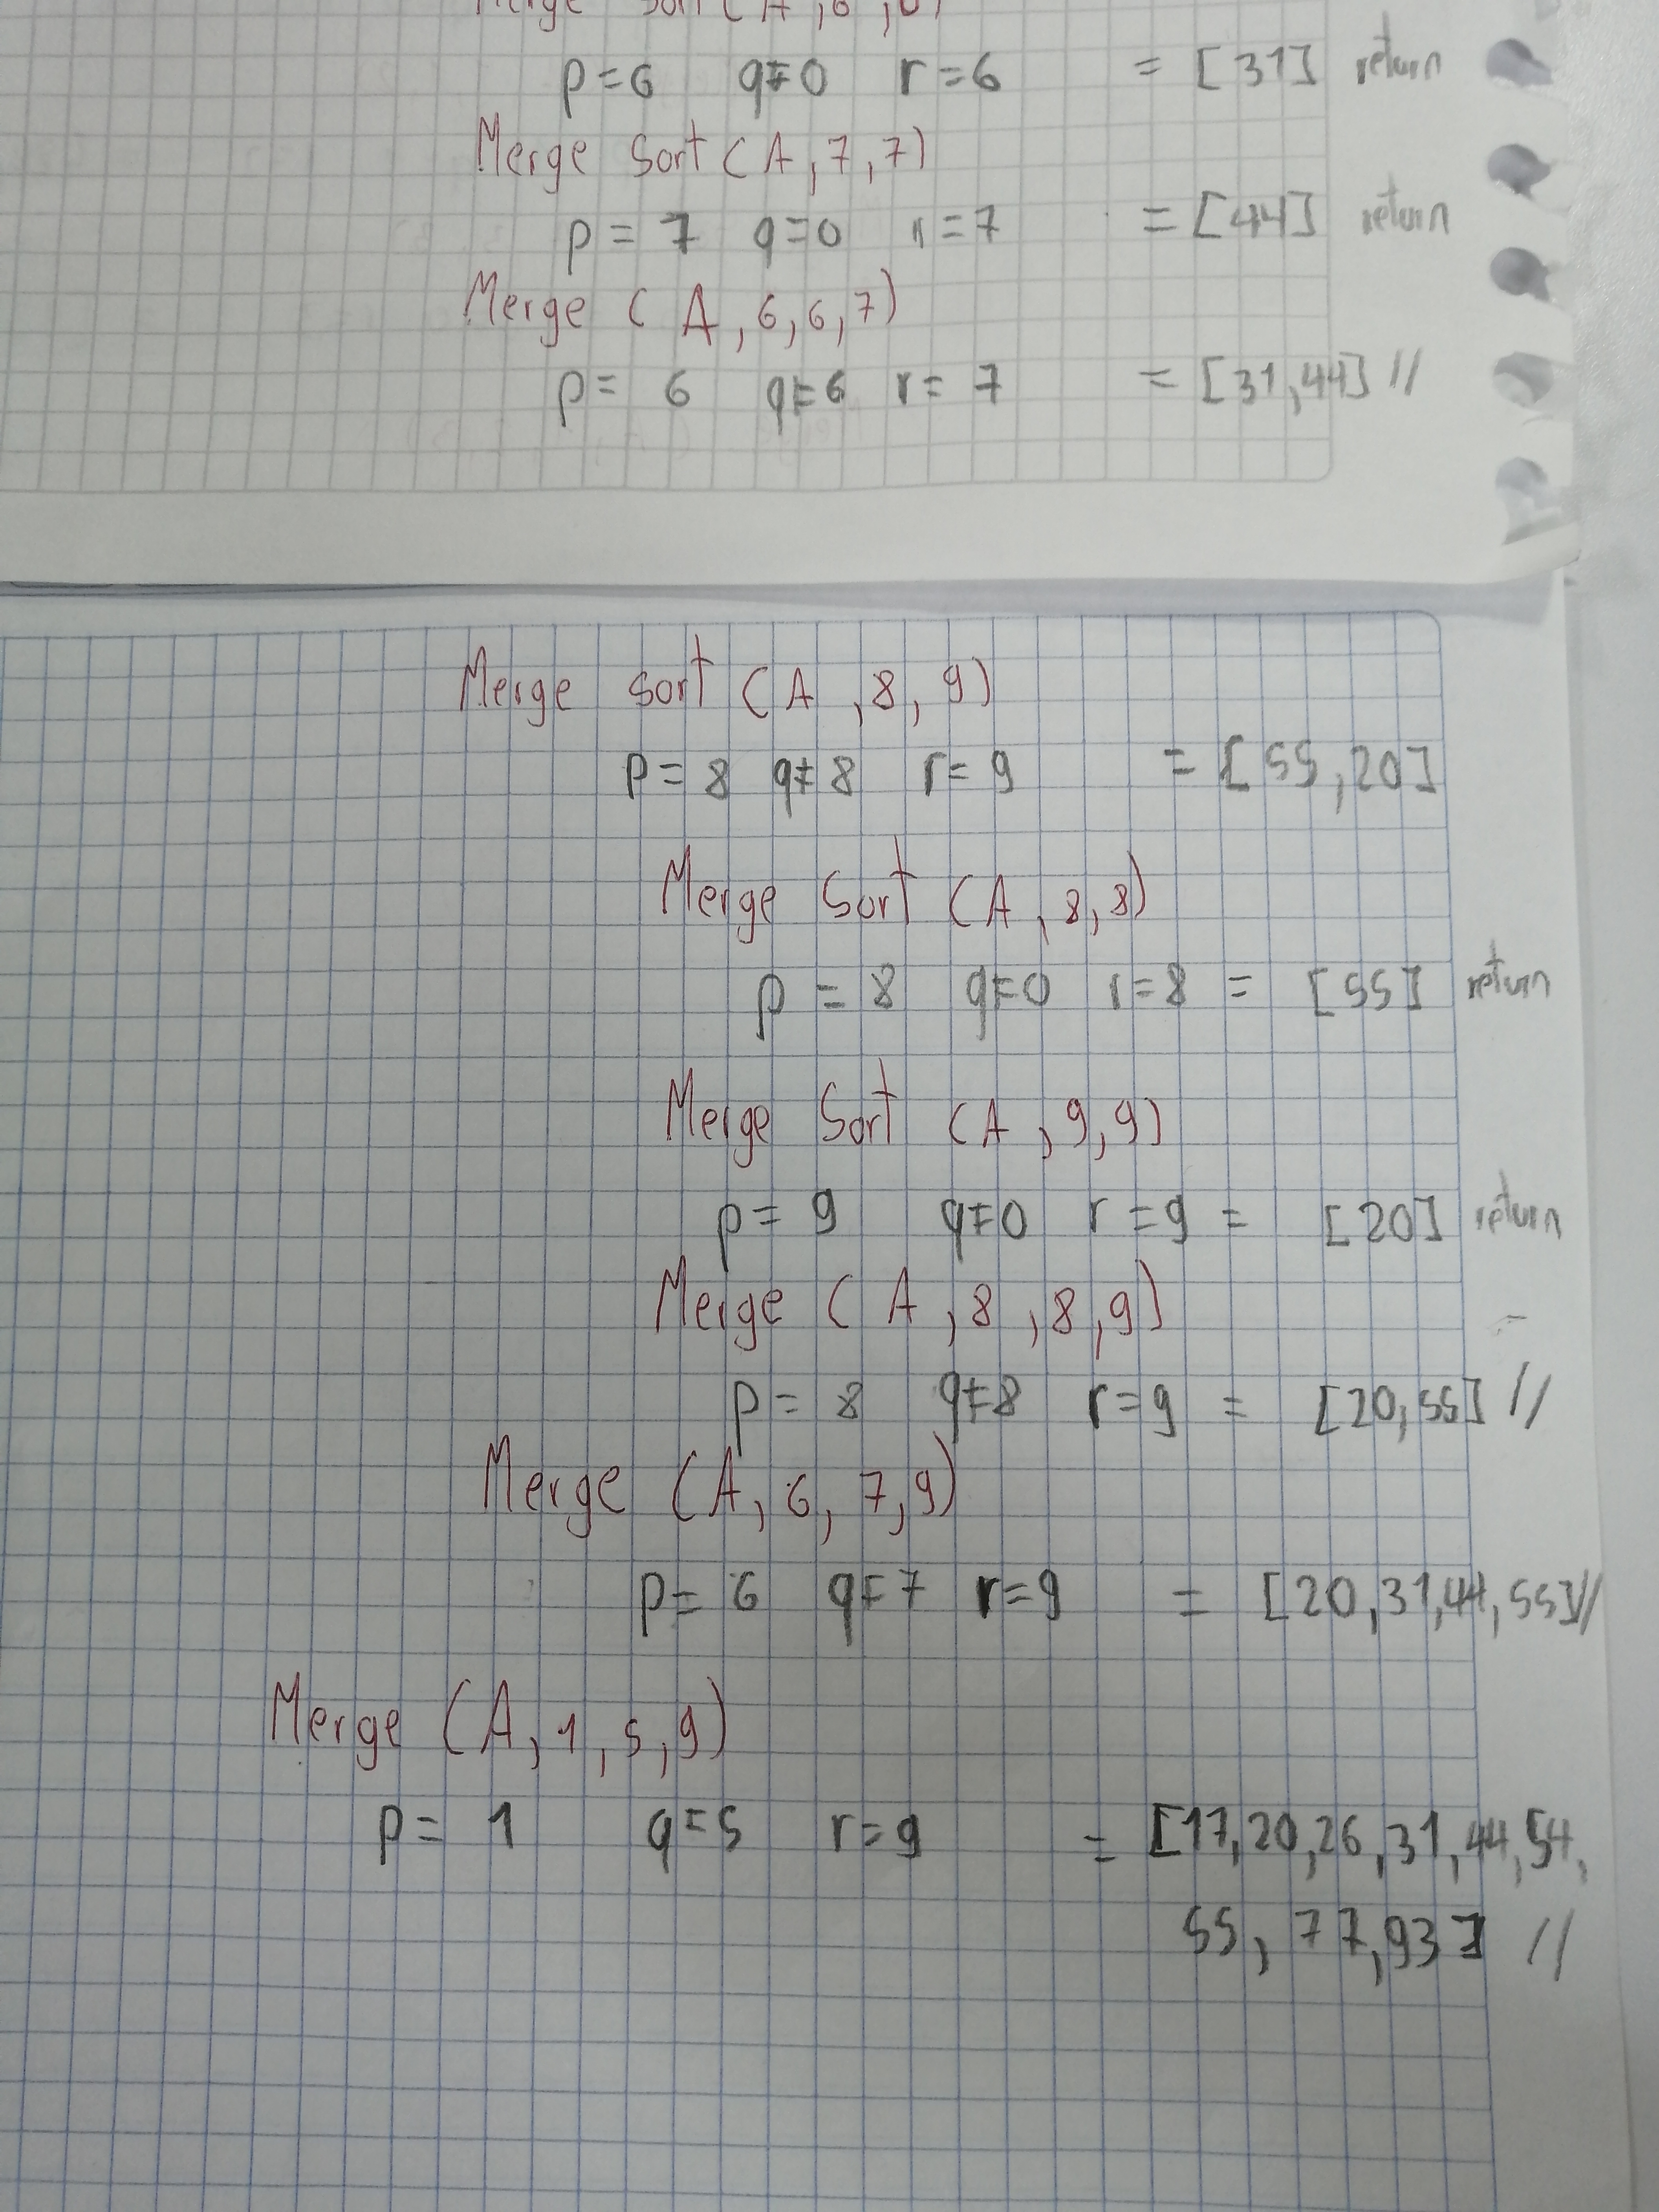 Merge Sort (A,6,6)
p=6 q=0 r=6 = [31] return
Merge Sort (A,7,7)
p=7 q=0 r=7 = [44] return
Merge (A,6,6,7)
p=6 q=6 r=7 = [31,44] //
Merge sort (A,8,9)
p=8 q=8 r=9 = [55,20]
Merge Sort (A,8,8)
p=8 q=0 r=8 = [55] return
Merge Sort (A,9,9)
p=9 q=0 r=9 = [20] return
Merge (A,8,8,9)
p=8 q=8 r=9 = [20,55] //
Merge (A,6,7,9)
p=6 q=7 r=9 = [20,31,44,55] //
Merge (A,1,5,9)
p=1 q=5 r=9 = [17,20,26,31,44,54,
55,77,93] //